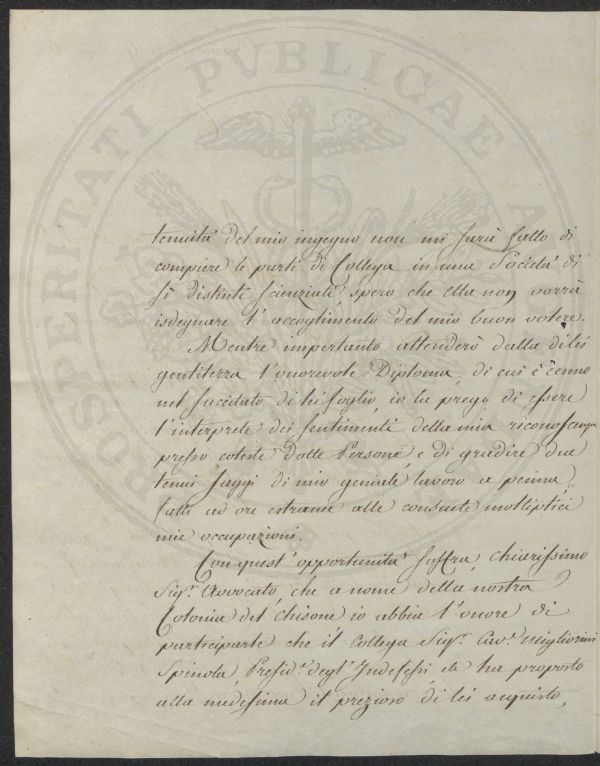 tenuità del mio ingegno non mi sarà fatto di
compiere le parti di Collega in una Società di
sì distinti scienziati, spero che ella non vorrà
isdegnare l'accoglimento del mio buon volere.
Mentre impertanto attenderò dalla di lei
gentilezza l'onorevole Diploma, di cui è cenno
nel sucitato di lei foglio, io la prego di essere
l'interprete dei sentimenti della mia riconoscenza
presso coteste dotte Persone, e di gradire due
tenui saggi di mio geniale lavoro a penna,
fatti ad ore estranee alle consuete moltiplici
mie occupazioni.
Con quest'opportunità soffra, chiarissimo
Sigr. Avvocato, che a nome della nostra
Colonia del Chisone io abbia l'onore di
participarle che il Collega Sigr. Cavr. Migliorini
Spinola, Presidte degl'Indefessi da ha proposto
alla medesima il prezioso di lei acquisto,
PROSPERITATI PVBLICAE A